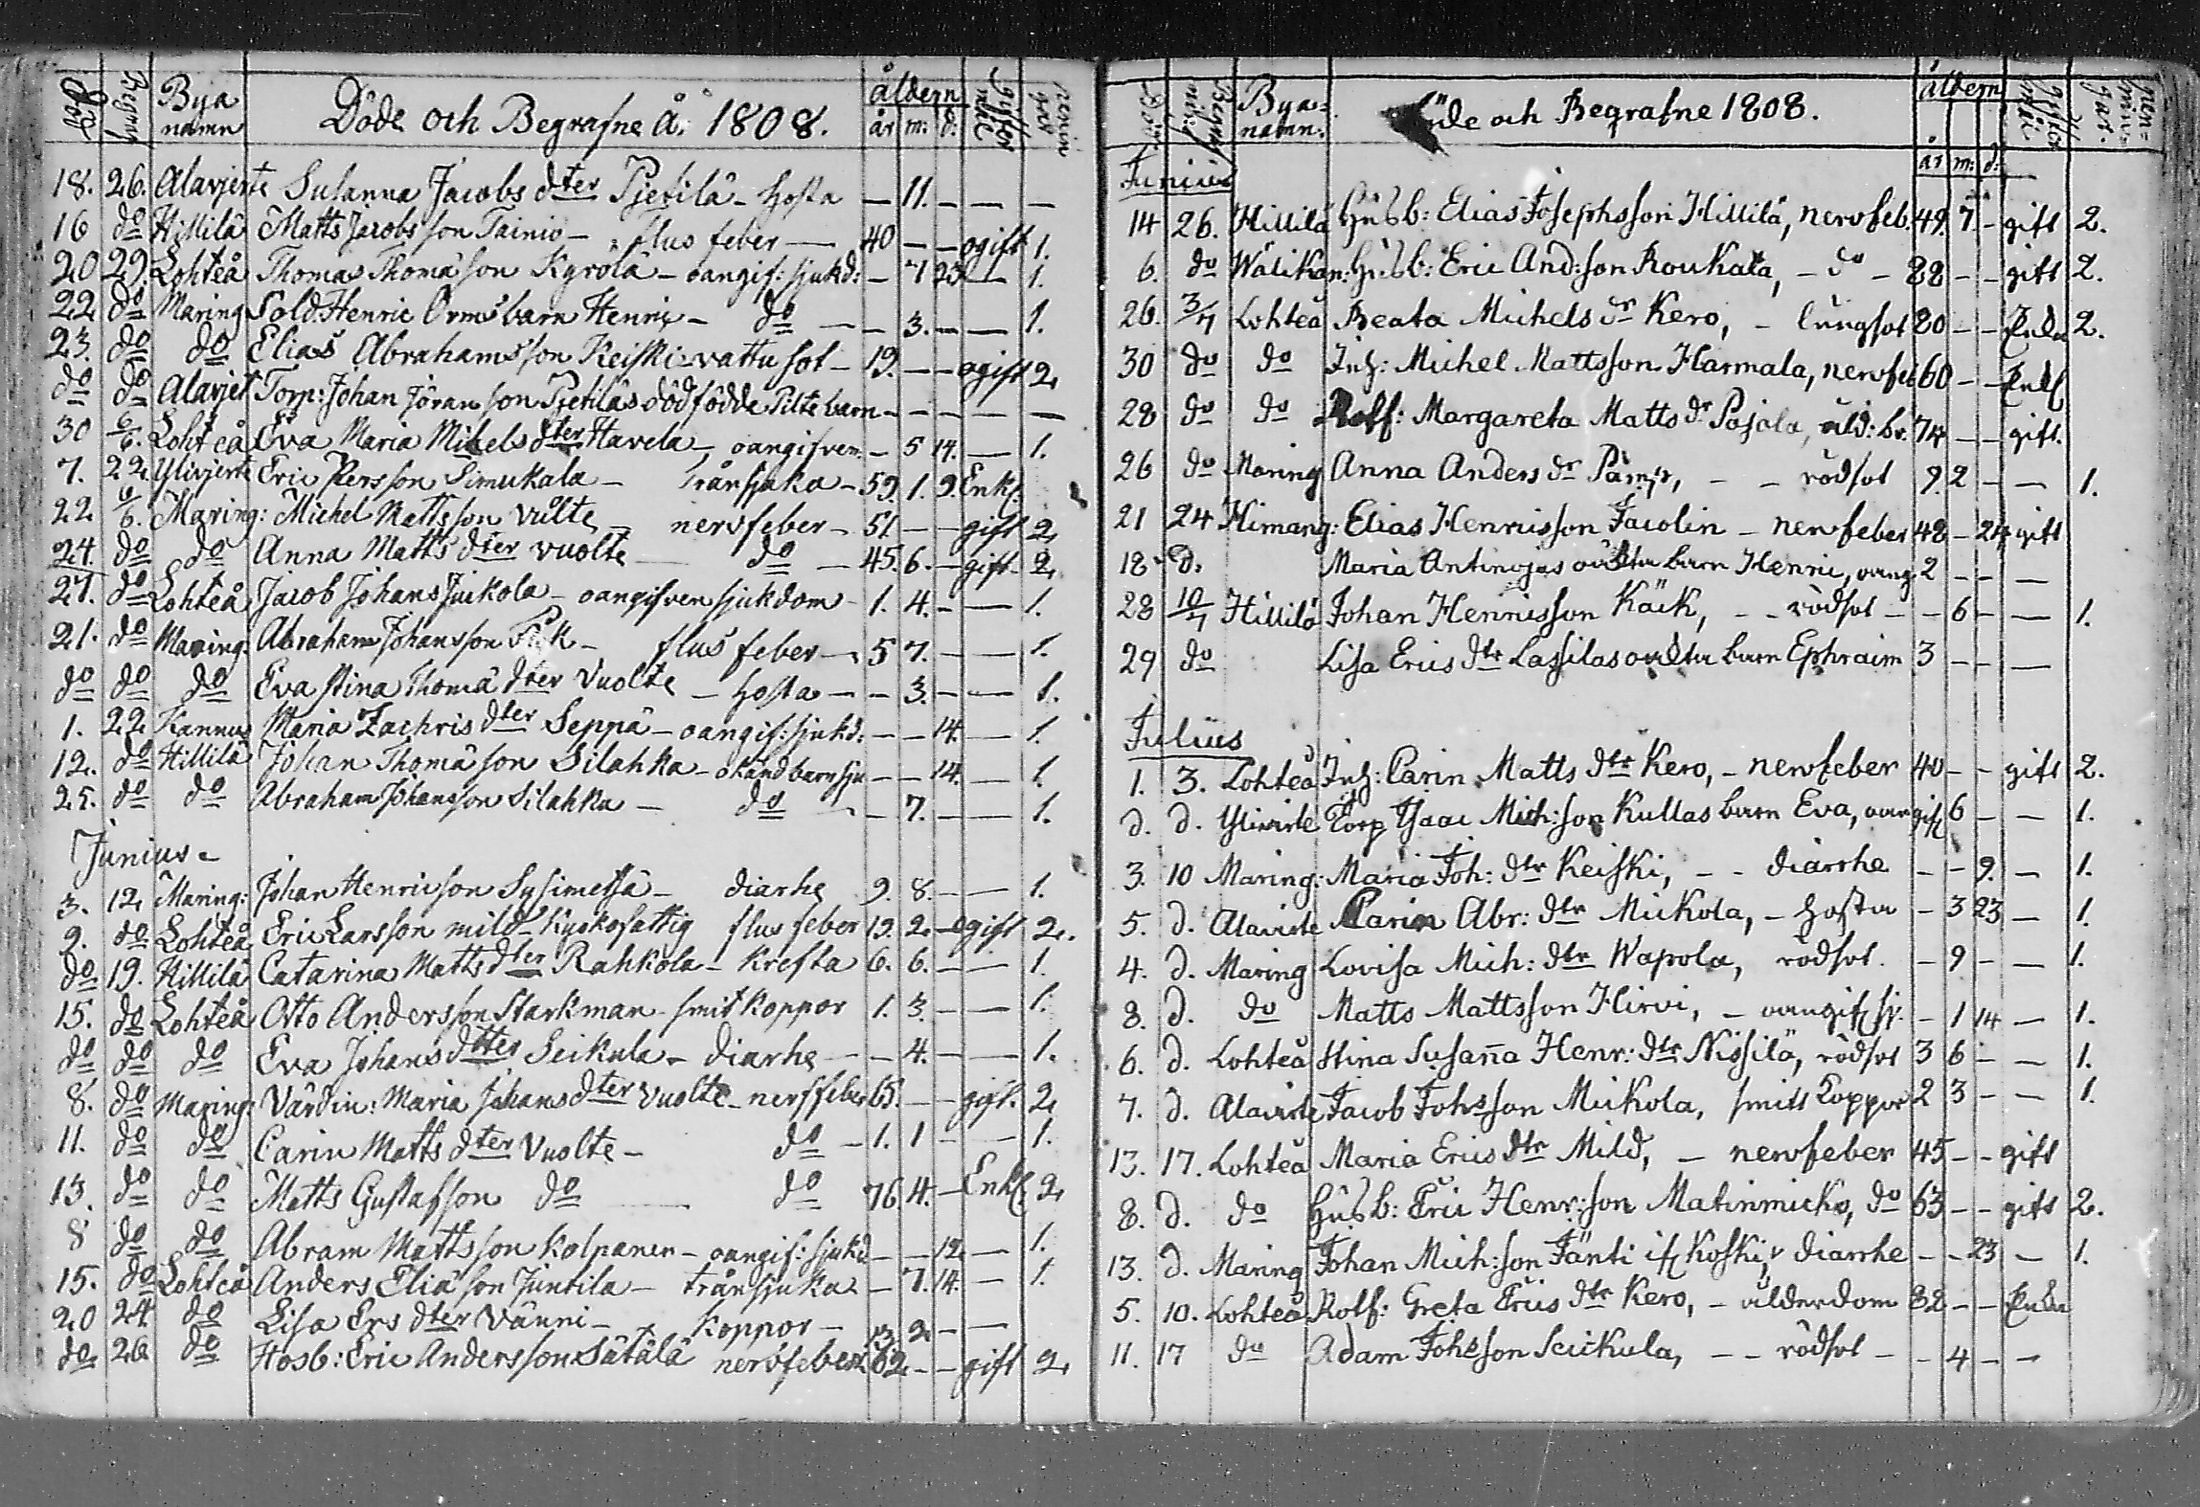 Död Begraf Bya namn Döde och Begrafne År 1808. åldern år m: d: gifter mål
18. 26. Alavjerte Susanna Jacobs dter Pjetilä - hosta - 11. - - -
16 do Hillilä Matts Jacobsson Tainio - flus feber - 40 - - ogift 1.
20 29. Lohteå Thomas Thomä son Kyrölä - oangif: sjukd: - 7 23 - 1.
22 do Maring Sold. Henric Orms barn Henric - do - - 3. - - 1.
23. do do Elias Abrahamsson Keiski - vattu sot - 19. - - ogift 2.
do do Alavjet Torp: Johan Jöransson Pjetiläs dödfödda Pilte barn - - - - -
30 6/6. Lohteå Eva Maria Mikels dter Havela - oangifven - 5 14. - 1.
7. 22 Ylivjerte Eric Persson Simukala - Trånsjuka - 59. 1. 9. Enkl.
22 6/6. Maring: Michel Mattsson Vuolte - nervfeber - 51 - - gift 2.
24. do do Anna Matts dter Vuolte - do - 45. 6. - gift 2.
27. do Lohteå Jacob Johans Juckola - oangifven sjukdom - 1. 4. - - 1.
21. do Maring: Abraham Johansson - flus feber - 5 7. - - 1.
do do do Eva Stina Thomä dter Vuolte - hosta - - 3. - - 1.
1. 22 Kannus Maria Zachris dter Seppä - oangif: sjukd: - - 14. - 1.
12. do Hillilä Johan Thomä son Silahka - okänd barnsju - - 14. - 1.
25. do do Abraham Johansson Silahka - do - 7. - - 1.
Junius -
3. 12. Maring: Johan Henricson Sysimetsä - diarhe 9. 8. - - 1.
9. do Lohteå Eric Larsson mild - Kyrkofattig flus feber 19. 2. - ogift 2.
do 19. Hillilä Catarina Matts dter Rahkola - Krefta 6. 6. - - 1.
15. do Lohteå Otto Andersson Starkman - smit koppor 1. 3. - - 1.
do do do Eva Johans dtter Seikula - diarhe - - 4. - - 1.
8. do Maring: Värdin: Maria Johans dter Vuolte - nerffeber 65. - - gift. 2.
11. do do Carin Matts dter Vuolte - do - 1. 1 - - 1.
13. do do Matts Gustafson do do 76. 4. - Enkl. 2.
8 do do Abram Mattsson Kolpanen - oangif: sjukd - - 12. - 1.
15. do Lohteå Anders Eliä son Juntila - trånsjuka - 7. 14. - 1.
20 24. do Lisa Ers dter Vänni - koppor - 13. 2 - -
do 26 do Hosb: Eric Andersson Sätälä nervfeber 62. - - gift 2.
Bya= namn. Döde och Begrafne 1808. åldern år m: d:
Junius
14 26. Hillilä Husb: Elias Josephsson Hillilä, nervfeb. 49. 7 - gift 2.
6. do Wälikan: Husb: Eric And:son Roukala, - do - 88 - - gift 2.
26. 3/7 Lohteå Beata Michels dr Kero, - lungsot 80 - - Enka 2.
30 do do Inh: Michel Mattsson Harmala, nervfeb 60 - - Enkl
28 do do Rotf: Margareta Matts dr Pajala, åld: br. 74 - - gift.
26 do Maring Anna Anders dr - - rödsot 9. 2 - - 1.
21 24 Himang: Elias Henricsson Jacolin - nervfeber 48 - 24 gift
18 d. Maria Antinojas oäkta barn Henric, oang. 2 - - -
28 10/7 Hillilä Johan Henricsson Käck, - - rödsot - - 6 - - 1.
29 do Lisa Erics dtr Lassilas oäkta barn Ephraim 3 - - -
Julius
1. 3. Lohteå Inh: Carin Matts dtr Kero, - nervfeber 40 - - gift 2.
d. d. Ylivirte Torp Isaac Mich:son Kullas barn Eva, oangif 6 - - 1.
3. 10 Maring: Maria Joh: dtr Keiski, - - diarrhe - - 9. - 1.
5. d. Alavirte Carin Abr: dtr Mickola, - hosta - 3 23 - 1.
4. d. Maring Lovisa Mich: dtr Wapola, rödsot. - 9 - - 1.
8. d. do Matts Mattsson Hirvi, - oangif sj. - 1 14 - 1.
6. d. Lohteå Stina Susana Henr: dtr Nissilä, rödsot 3 6 - - 1.
7. d. Alavirte Jacob Johsson Mickola, smitt koppor 2 3 - - 1.
13. 17. Lohteå Maria Erics dtr Mild, - nervfeber 45 - - gift
8. d. do Husb: Eric Henr:son Matinmicko, do 63 - - gift 2.
13. d. Maring Johan Mich:son Jänti if Koski, diarrhe - - 23 - 1.
5. 10. Lohteå Rotf: Greta Erics dtr Kero, - ålderdom 82 - - Enka
11. 17 do Adam Johsson Scickula, - - rödsot - - 4 - -